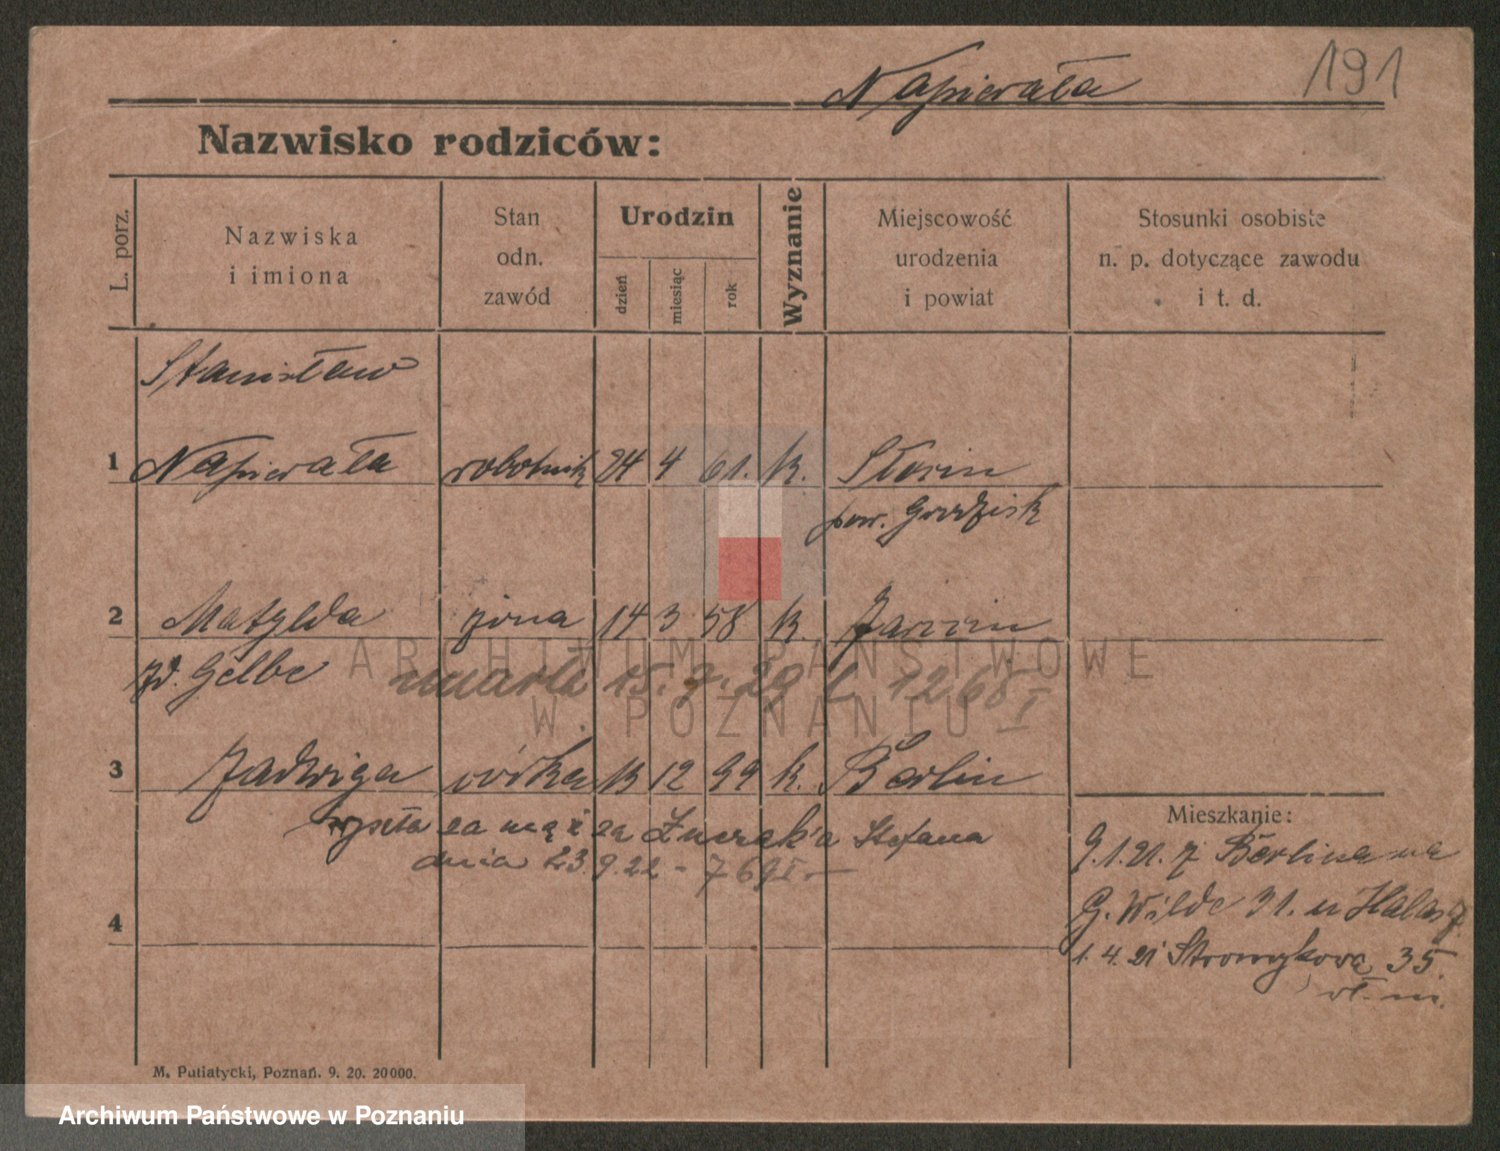 Napierała 191
Nazwisko rodziców:
L. porz.
Nazwiska
i imiona
Stan
odn.
zawód
Urodzin
dzień
miesiąc
rok
Wyznanie
Miejscowość
urodzenia
i powiat
Stosunki osobiste
n. p. dotyczące zawodu
i t. d.
Stanisław
1 Napierała robotnik 24 4 61. k.
pow. Grodzisk
2 Matylda żona 14 3 58 k. Jarocin
zd. Gelbe umarła 15. 7. 29 1268 I
3 Jadwiga córka 13 12 99 k. Berlin
wyszła za mąż za Żuraka Stefana
dnia 23.9.22 - 769 I.
4
Mieszkanie:
9.1.21. z Berlina na
G. Wilde 31. u
1.4.21 Stromykowa 35.
M. Putiatycki, Poznań. 9. 20. 20000.
ARCHIWUM PAŃSTWOWE
W POZNANIU
Archiwum Państwowe w Poznaniu